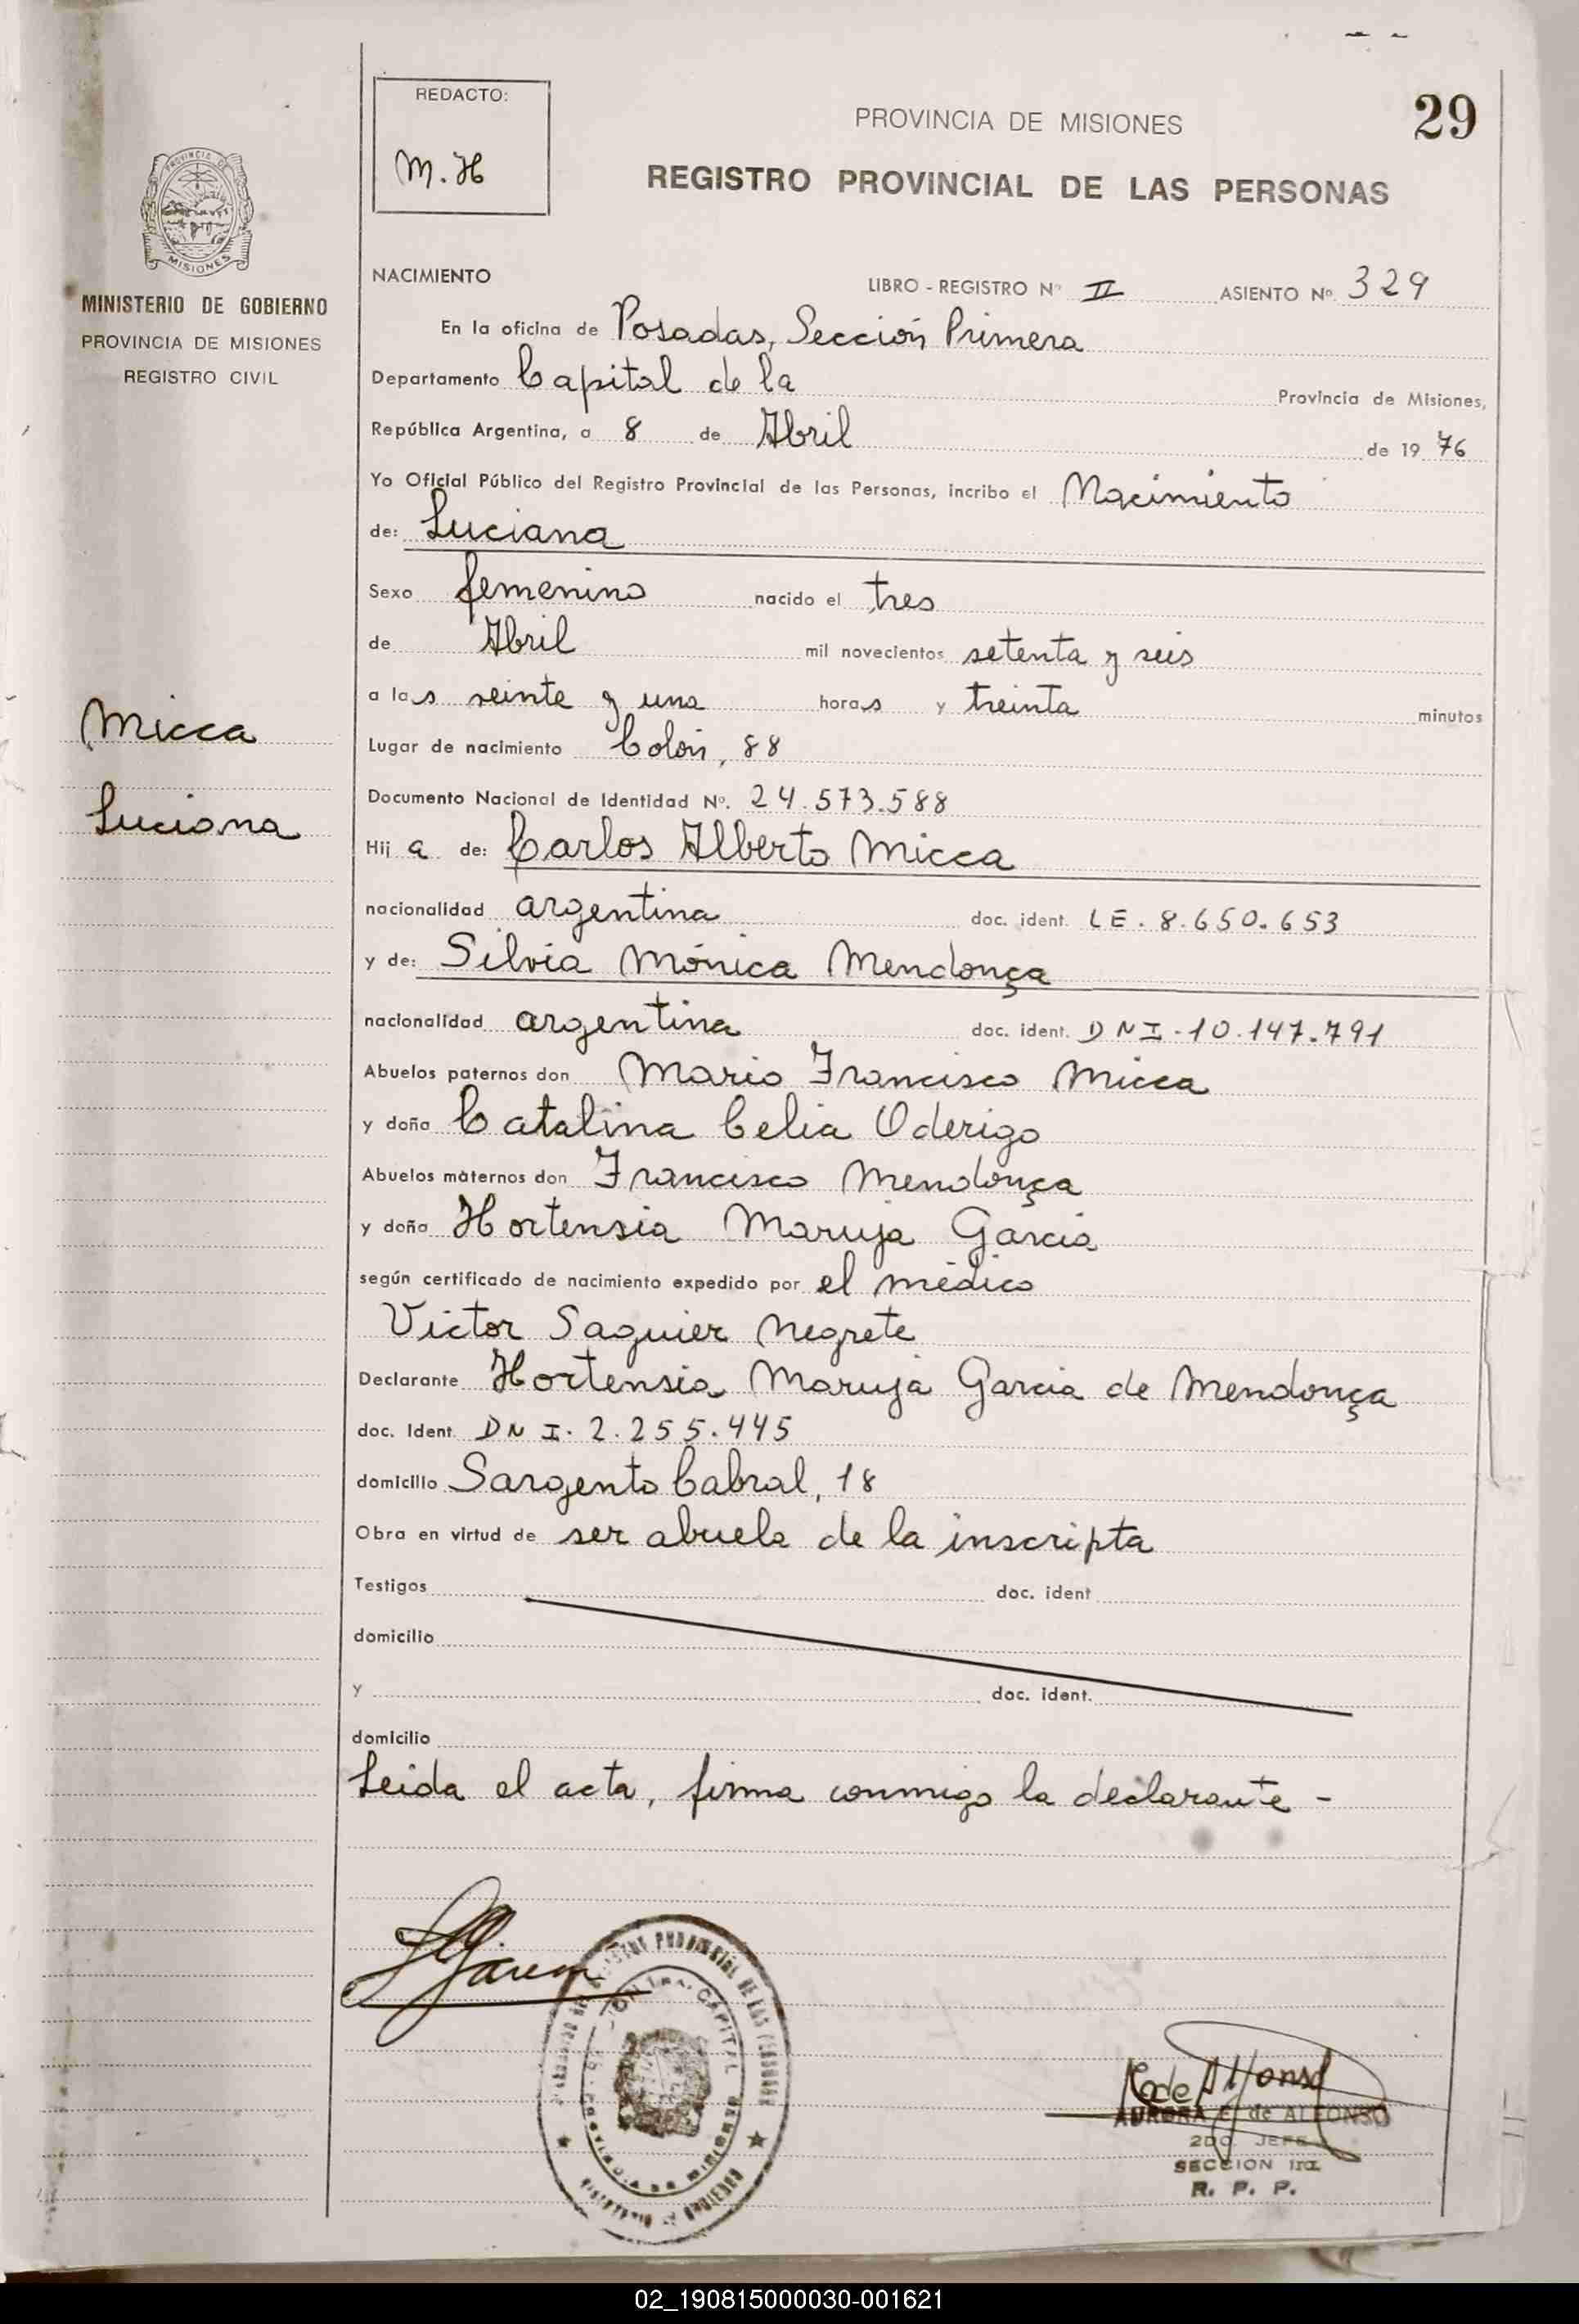 REDACTO:
M.H
PROVINCIA DE MISIONES
29
REGISTRO PROVINCIAL DE LAS PERSONAS
PROVINCIA DE
MISIONES
MINISTERIO DE GOBIERNO
PROVINCIA DE MISIONES
REGISTRO CIVIL
Micca
Luciana
NACIMIENTO LIBRO - REGISTRO Nº II ASIENTO Nº 329
En la oficina de Posadas, Sección Primera
Departamento Capital de la Provincia de Misiones,
República Argentina, a 8 de Abril de 19 76
Yo Oficial Público del Registro Provincial de las Personas, incribo el Nacimiento
de: Luciana
Sexo femenino nacido el tres
de Abril mil novecientos setenta y seis
a las veinte y una horas y treinta minutos
Lugar de nacimiento Colón, 88
Documento Nacional de Identidad Nº. 24.573.588
Hij a de: Carlos Alberto Micca
nacionalidad argentina doc. ident. LE. 8.650.653
y de: Silvia Mónica Mendonça
nacionalidad argentina doc. ident. DNI-10.147.791
Abuelos paternos don Mario Francisco Micca
y doña Catalina Celia Oderigo
Abuelos maternos don Francisco Mendonça
y doña Hortensia Maruja Garcia
según certificado de nacimiento expedido por el médico
Victor Saguier Negrete
Declarante Hortensia Maruja Garcia de Mendonça
doc. Ident. DNI. 2.255.445
domicilio Sargento Cabral, 18
Obra en virtud de ser abuela de la inscripta
Testigos doc. ident
domicilio
y doc. ident.
domicilio
Leida el acta, firma conmigo la declarante -
AURORA E. de ALFONSO
2DO. JEFE
SECCION 1ra
R. P. P.
02_190815000030-001621